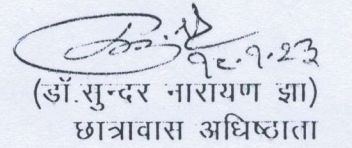 १८.१.२३
(डॉ.सुन्दर नारायण झा)
छात्रावास अधिष्ठाता